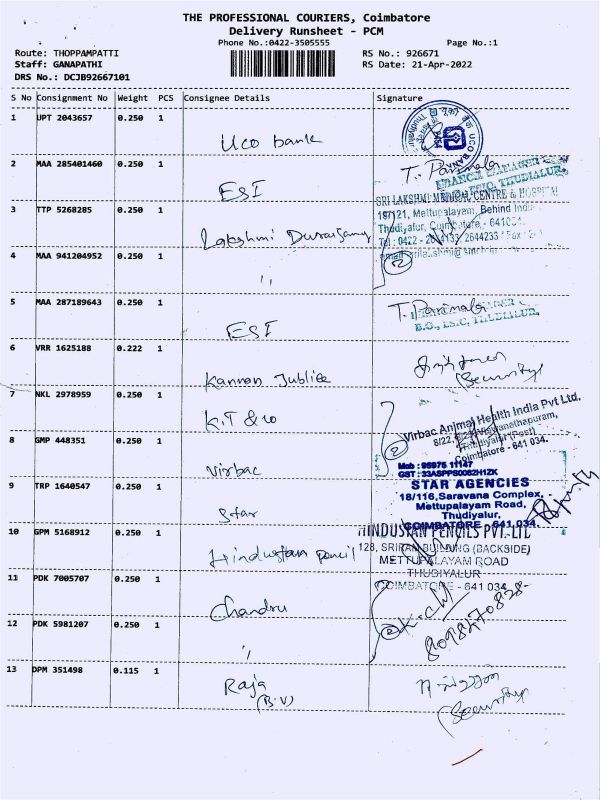 THE PROFESSIONAL COURIERS, Coimbatore
Delivery Runsheet - PCM
Phone No.:0422-3505555
Page No.:1
Route: THOPPAMPATTI
RS No.: 926671
Staff: GANAPATHI
RS Date: 21-Apr-2022
DRS No.: DCJB92667101
S No Consignment No Weight PCS Consignee Details Signature
1 UPT 2043657 0.250 1
Uco bank
UCO BANK
2 MAA 285401460 0.250 1
ESI
T. Parimala
BRANCH MANAGER
THUDIALUR
3 TTP 5268285 0.250 1
Lakshmi Duraisamy
SRI LAKSHMI MEDICAL CENTRE & HOSPITAL
18/121, Mettupalayam, Behind
Thudiyalur, Coimbatore - 641034
Tel : 0422 -
4 MAA 941204952 0.250 1
"
2
5 MAA 287189643 0.250 1
ESI
T. Parimala
B.O., E.S.I.C, THUDIALUR.
6 VRR 1625188 0.222 1
Kannan Jubliee
(Security)
7 NKL 2978959 0.250 1
K.T & co
8 GMP 448351 0.250 1
Virbac
2
Virbac Animal Health India Pvt Ltd.
Viswanathapuram,
Thudiyalur (Post)
Coimbatore - 641 034.
9 TRP 1640547 0.250 1
Star
Mob : 95975 11147
GST : 33ASPPS0062H1ZK
STAR AGENCIES
18/116,Saravana Complex,
Mettupalayam Road,
Thudiyalur,
COIMBATORE - 641 034.
10 GPM 5168912 0.250 1
Hindustan pencil
HINDUSTAN PENCILS PVT. LTD
128, SRIRAM BUILDING (BACKSIDE)
METTUPALAYAM ROAD
THUDIYALUR
COIMBATORE - 641 034
11 PDK 7005707 0.250 1
Chandru
12 PDK 5981207 0.250 1
"
2
8098470828
13 DPM 351498 0.115 1
Raja
(B.V)
(Security)